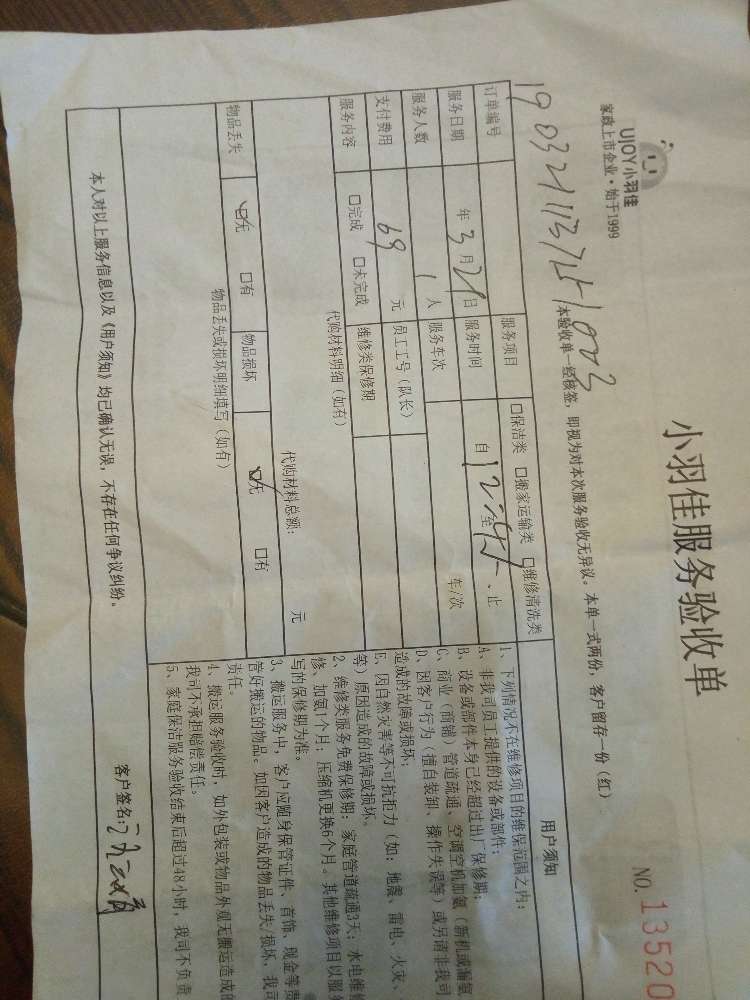 UJOY小羽佳
家政上市企业·始于1999
小羽佳服务验收单
NO.13520
本验收单一经核签，即视为对本次服务验收无异议。本单一式两份，客户留存一份（红）
订单编号
服务项目
□保洁类 □搬家运输类 □维修清洗类
服务日期
年3月21日
服务时间
自12 至 、止
服务人数
1人
服务车次
车/次
支付费用
69元
员工工号（队长）
服务内容
□完成 □未完成
维修类保修期
代购材料明细（如有）
代购材料总额： 元
物品丢失
☑无 □有
物品损坏
☑无 □有
物品丢失或损坏明细填写（如有）
本人对以上服务信息以及《用户须知》均已确认无误，不存在任何争议纠纷。
用户须知
1、下列情况不在维修项目的维保范围之内：
A、非我司员工提供的设备或部件；
B、设备或部件本身已经超过出厂保修期；
C、商业（商铺）管道疏通、空调空机加氨（新机或漏氨
D、因客户行为（擅自装卸、操作失误等）或另请非我司
造成的故障或损坏；
E、因自然灾害等不可抗拒力（如：地震、雷电、火灾、
等）原因造成的故障或损坏。
2、维修类服务免费保修期：家庭管道疏通3天；水电维
修、加氨1个月；压缩机更换6个月。其他维修项目以服
写的保修期为准。
3、搬运服务中，客户应随身保管证件、首饰、现金等贵
管好搬运的物品。如因客户造成的物品丢失/损坏，我司
责任。
4、搬运服务验收时，如外包装或物品外观无搬运造成的
我司不承担赔偿责任。
5、家庭保洁服务验收结束后超过48小时，我司不负责
客户签名：